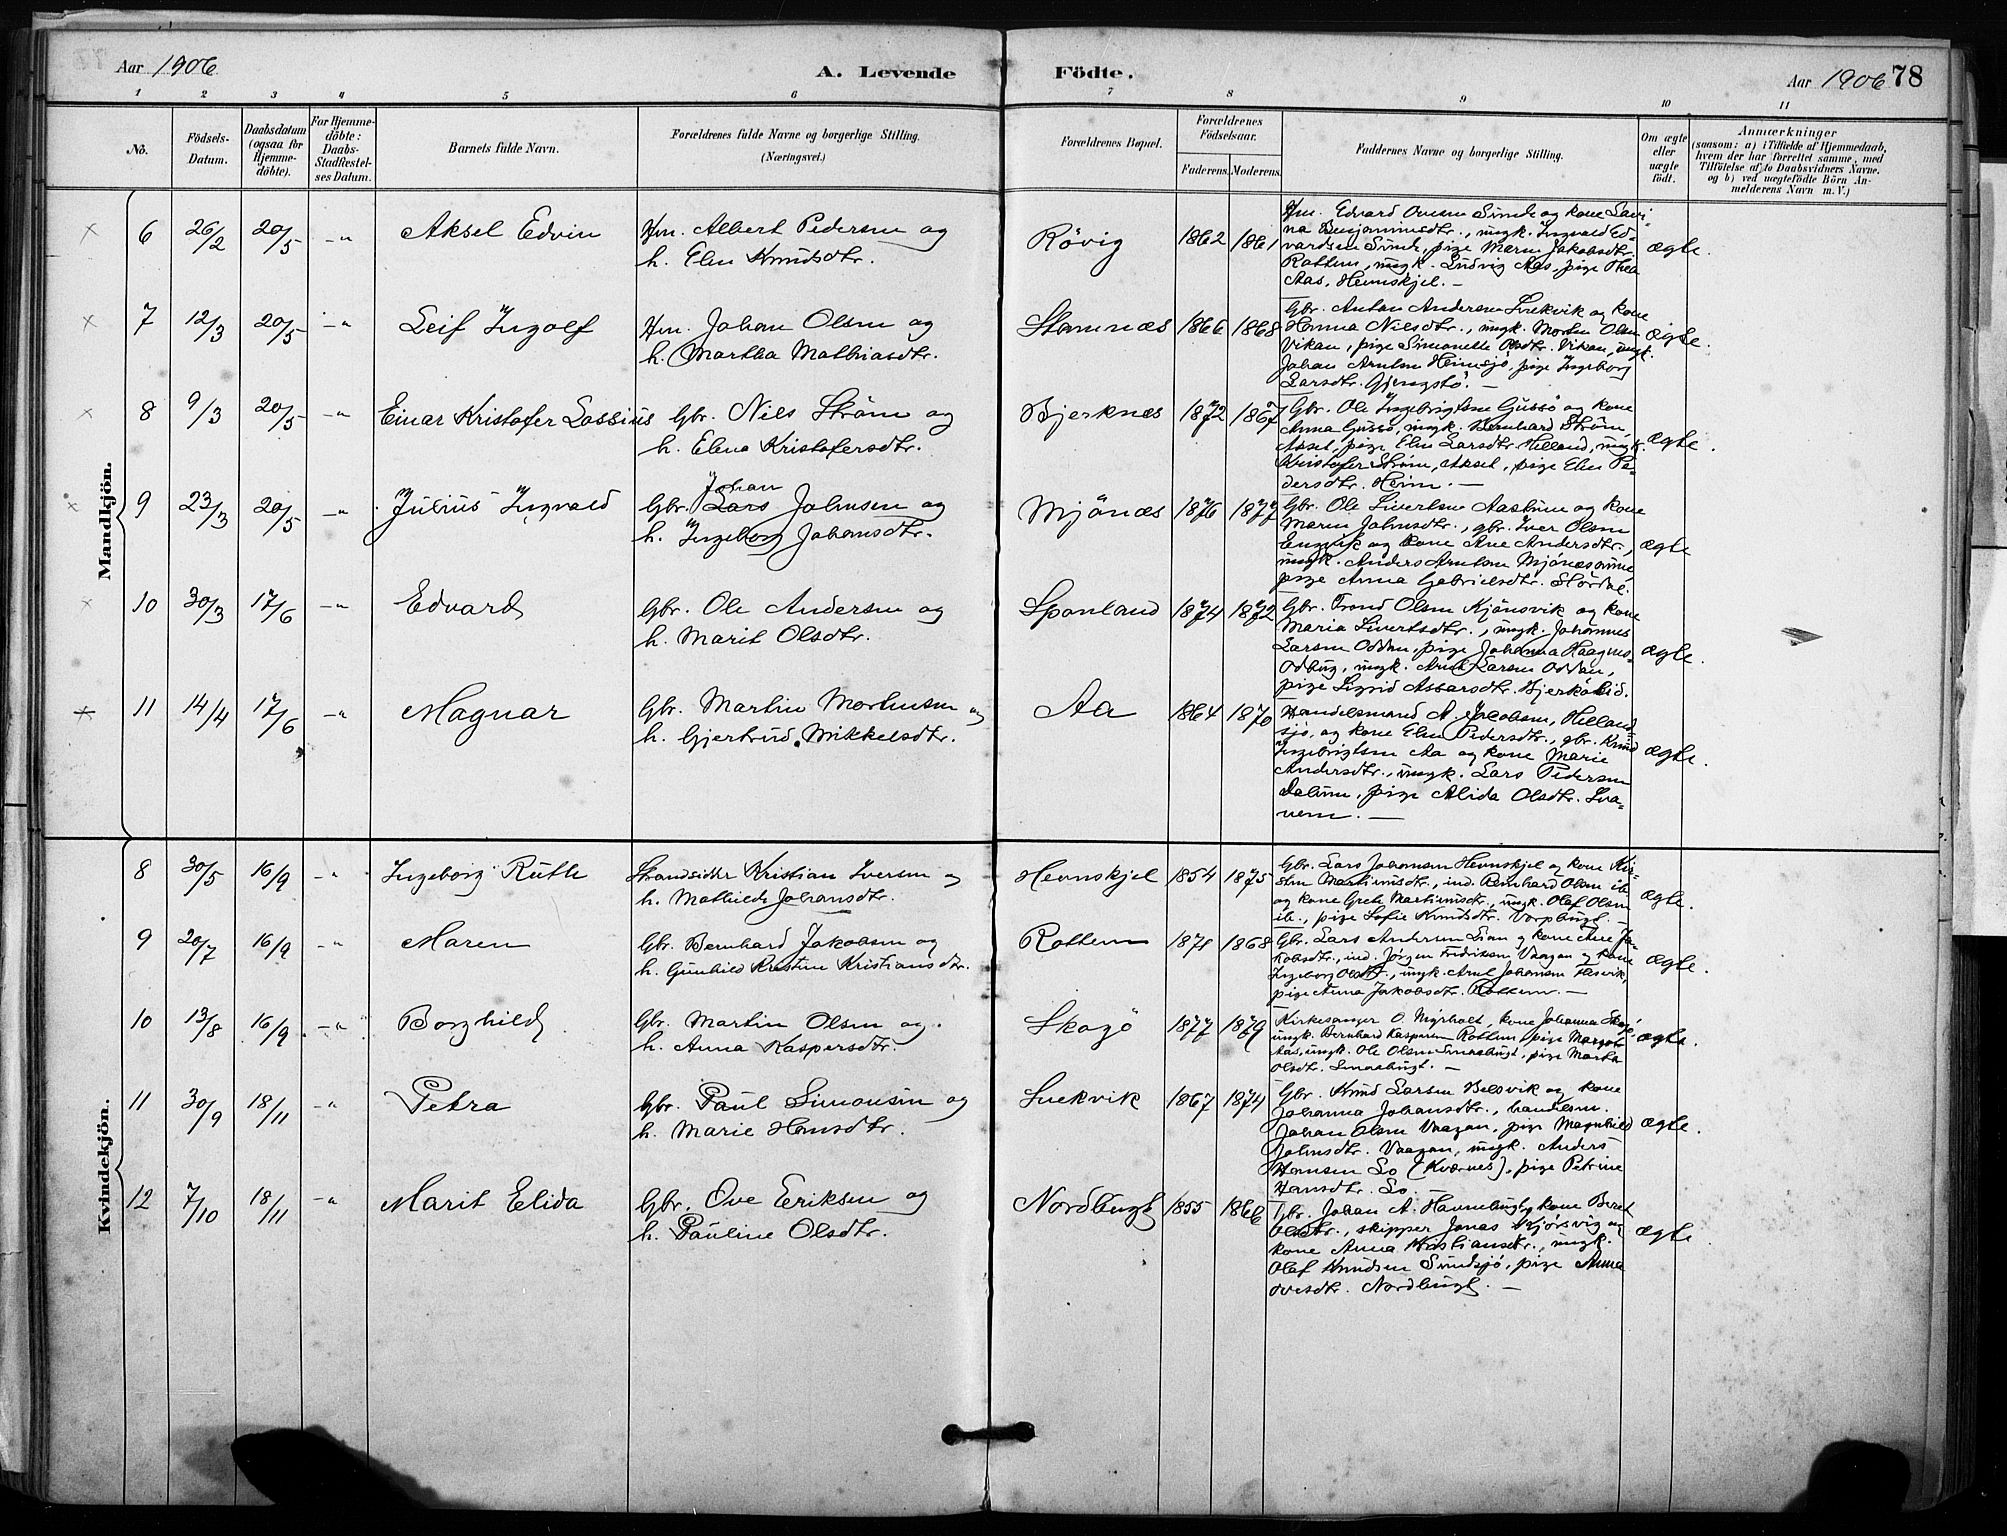 Aar 1906
A. Levende Födte.
Aar 1906 78
1 2 3 4 5 6 7 8 9 10 11
No.
Födsels-Datum.
Daabsdatum (ogsaa för Hjemme-döbte).
For Hjemme-döbte: Daabs-Stadfæstel-ses Datum.
Barnets fulde Navn.
Forældrenes fulde Navne og borgerlige Stilling. (Næringsvei.)
Forældrenes Bopæl.
Forældrenes Födselsaar.
Faderens. Moderens.
Faddernes Navne og borgerlige Stilling.
Om ægte eller uægte födt.
Anmærkninger
(saasom: a) i Tilfælde af Hjemmedaab, hvem der har forrettet samme, med Tilföielse af to Daabsvidners Navne. og b) ved uægtefödte Börn An-melderens Navn m. V.)
Mandkjön.
6 26/2 20/5 -"- Aksel Edvin Hm. Albert Pedersen og
h. Elen Knudsdtr.
Rövig 1862 1861 ægte.
Hm. Edvard Ovesen Sunde og kone Lavi-
na Benjaminsdtr., ungk. Ingvald Ed-
vardsen Sunde, pige Maren Jakobsdtr.
Rottem, ungk. Ludvig Aas, pige Thea
Aas, Hemskjel. –
7 12/3 20/5 -"- Leif Ingolf Hm. Johan Olsen og
h. Martha Mathiasdtr.
Stamnæs 1866 1868 ægte.
Gbr. Anton Andersen Snekvik og kone
Hanna Nilsdtr., ungk. Morten Olsen
Vikan, pige Simonette Olsdtr. Vikan, ungk.
Johan Arntsen Heimsjö, pige Ingeborg
Larsdtr. Gjengstö. –
8 9/3 20/5 -"- Einar Kristofer Lossius Gbr. Nils Ström og
h. Elena Kristofersdtr.
Bjerknæs 1872 1867 ægte.
Gbr. Ole Ingebrigtsen Gussö og kone
Anna Gussö, ungk. Bernhard Ström,
Aksel, pige Elen Larsdtr. Hilland, ungk.
Kristofer Ström, Aksel, pige Elen Pe-
dersdtr. Heim. –
9 23/3 20/5 -"- Julius Ingvald Gbr. Johan Lars Johnsen og
h. Ingeborg Johansdtr.
Mjönæs 1876 1877 ægte
Gbr. Ole Sivertsen Aastum og kone
Maren Johnsdtr., gbr. Iver Olsen
Engvik og kone Ane Andersdtr.,
ungk. Anders Arntsen Mjönesaune,
pige Anna Gabrielsdtr. Stördal.
10 30/3 17/6 -"- Edvard Gbr. Ole Andersen og
h. Marit Olsdtr.
Sponland 1874 1872 ægte.
Gbr. Trond Olsen Kjönsvik og kone
Maria Sivertsdtr., ungk. Johannes
Larsen Oddan, pige Johanna Haagens-
, ungk. Arnt Larsen Oddan,
pige Sigrid Assarsdtr. Bjerkölid.
11 14/4 17/6 -"- Magnar Gbr. Martin Mortensen og
h. Gjertrud Mikkelsdtr.
Aa 1864 1870 ægte.
Handelsmand A. Jacobsen, Hilland-
sjö, og kone Elen Pedersdtr., gbr. Knud
Ingebrigtsen Aa og kone Marie
Andersdtr., ungk. Lars Pedersen
, pige Alida Olsdtr. Sva-
nem. –
Kvindekjön.
8 30/5 16/9 -"- Ingeborg Ruth Strandsidder Kristian Iversen og
h. Mathilde Johansdtr.
Hemnskjel 1854 1875 ægte.
Gbr. Lars Johansen Hemnskjel og kone Kir-
sten Martinusdtr., ind. Bernhard Olsen ib.
og kone Grete Martinusdtr., ungk. Olaf Olsen
ib., pige Sofie Knudsdtr. Vorpbugt. –
9 20/7 16/9 -"- Maren Gbr. Bernhard Jakobsen og
h. Gunhild Kristine Kristiansdtr.
Rottem 1871 1868 ægte.
Gbr. Lars Andersen Lian og kone Ane Ja-
kobsdtr., ind. Jörgen Fredriksen Vaagan og kone
Ingeborg Olsdtr., ungk. Arnt Johansen
pige Anna Jakobsdtr. Rottem. –
10 13/8 16/9 -"- Borghild Gbr. Martin Olsen og
h. Anna Kaspersdtr.
Skogö 1877 1879 ægte.
Kirkesanger O. Myrholt, kone Johanna Skogö,
ungk. Bernhard Kaspersen Rottem, pige Margot
Aas, ungk. Ole Olsen Smaabugt, pige Martha
Olsdtr. Smaabugt. –
11 30/9 18/11 -"- Petra Gbr. Paul Simonsen og
h. Marie Hansdtr.
Snekvik 1867 1874 ægte.
Gbr. Knud Larsen Belsvik og kone
Johanna Johansdtr., handelsm.
Johan Olsen Vaagan, pige Magnhild
Johnsdtr. Vaagan, ungk. Anders
Hansen Lo (Kværnes), pige Petrine
Hansdtr. Lo.
12 7/10 18/11 -"- Marit Elida Gbr. Ove Eriksen og
h. Pauline Olsdtr.
Nordbugt 1855 1866 ægte
Gbr. Johan A. Havnebugt og kone Beret
Olsdtr., skipper Jonas Kjörsvig og
kone Anna Kristiansdtr., ungk.
Olaf Knudsen Sundsjö, pige Anna
Ovesdtr. Nordbugt. –